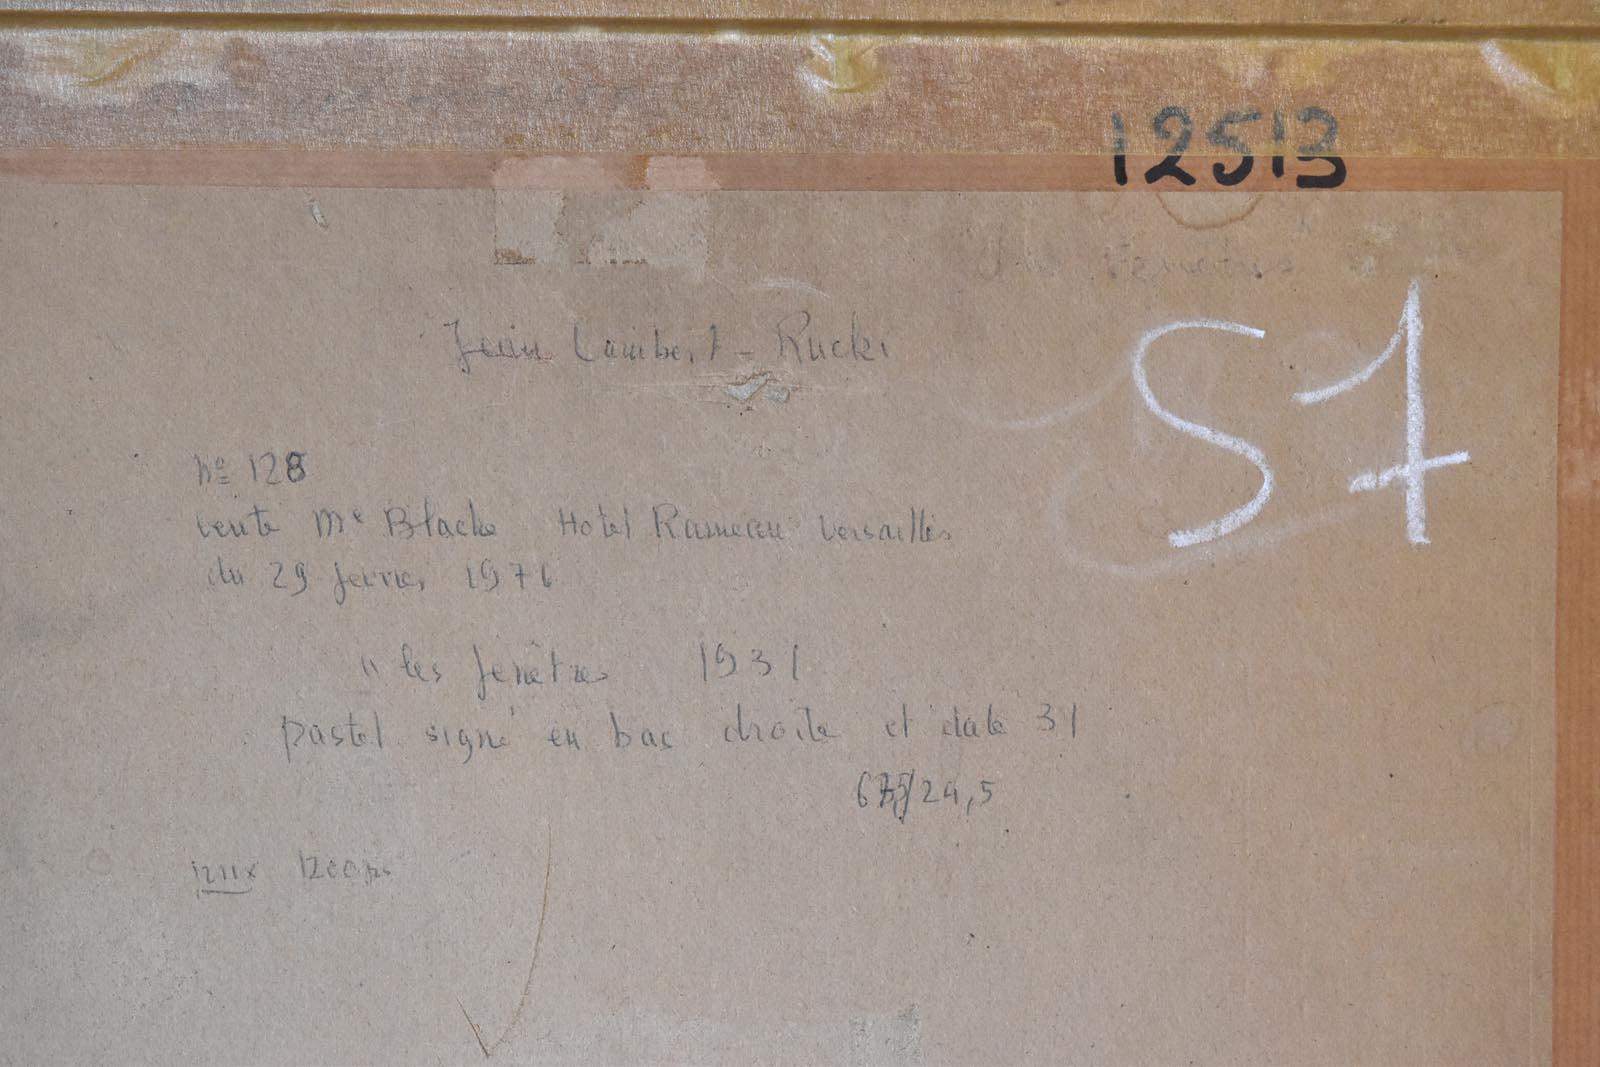 12513
Fenetres
Jean Lambert - Rucki
57
nº 128
vente Me Blache Hotel Rameau Versailles
du 29 fevrier 1976
" les fenêtres 1931
pastel signé en bas droite et daté 31
/24,5